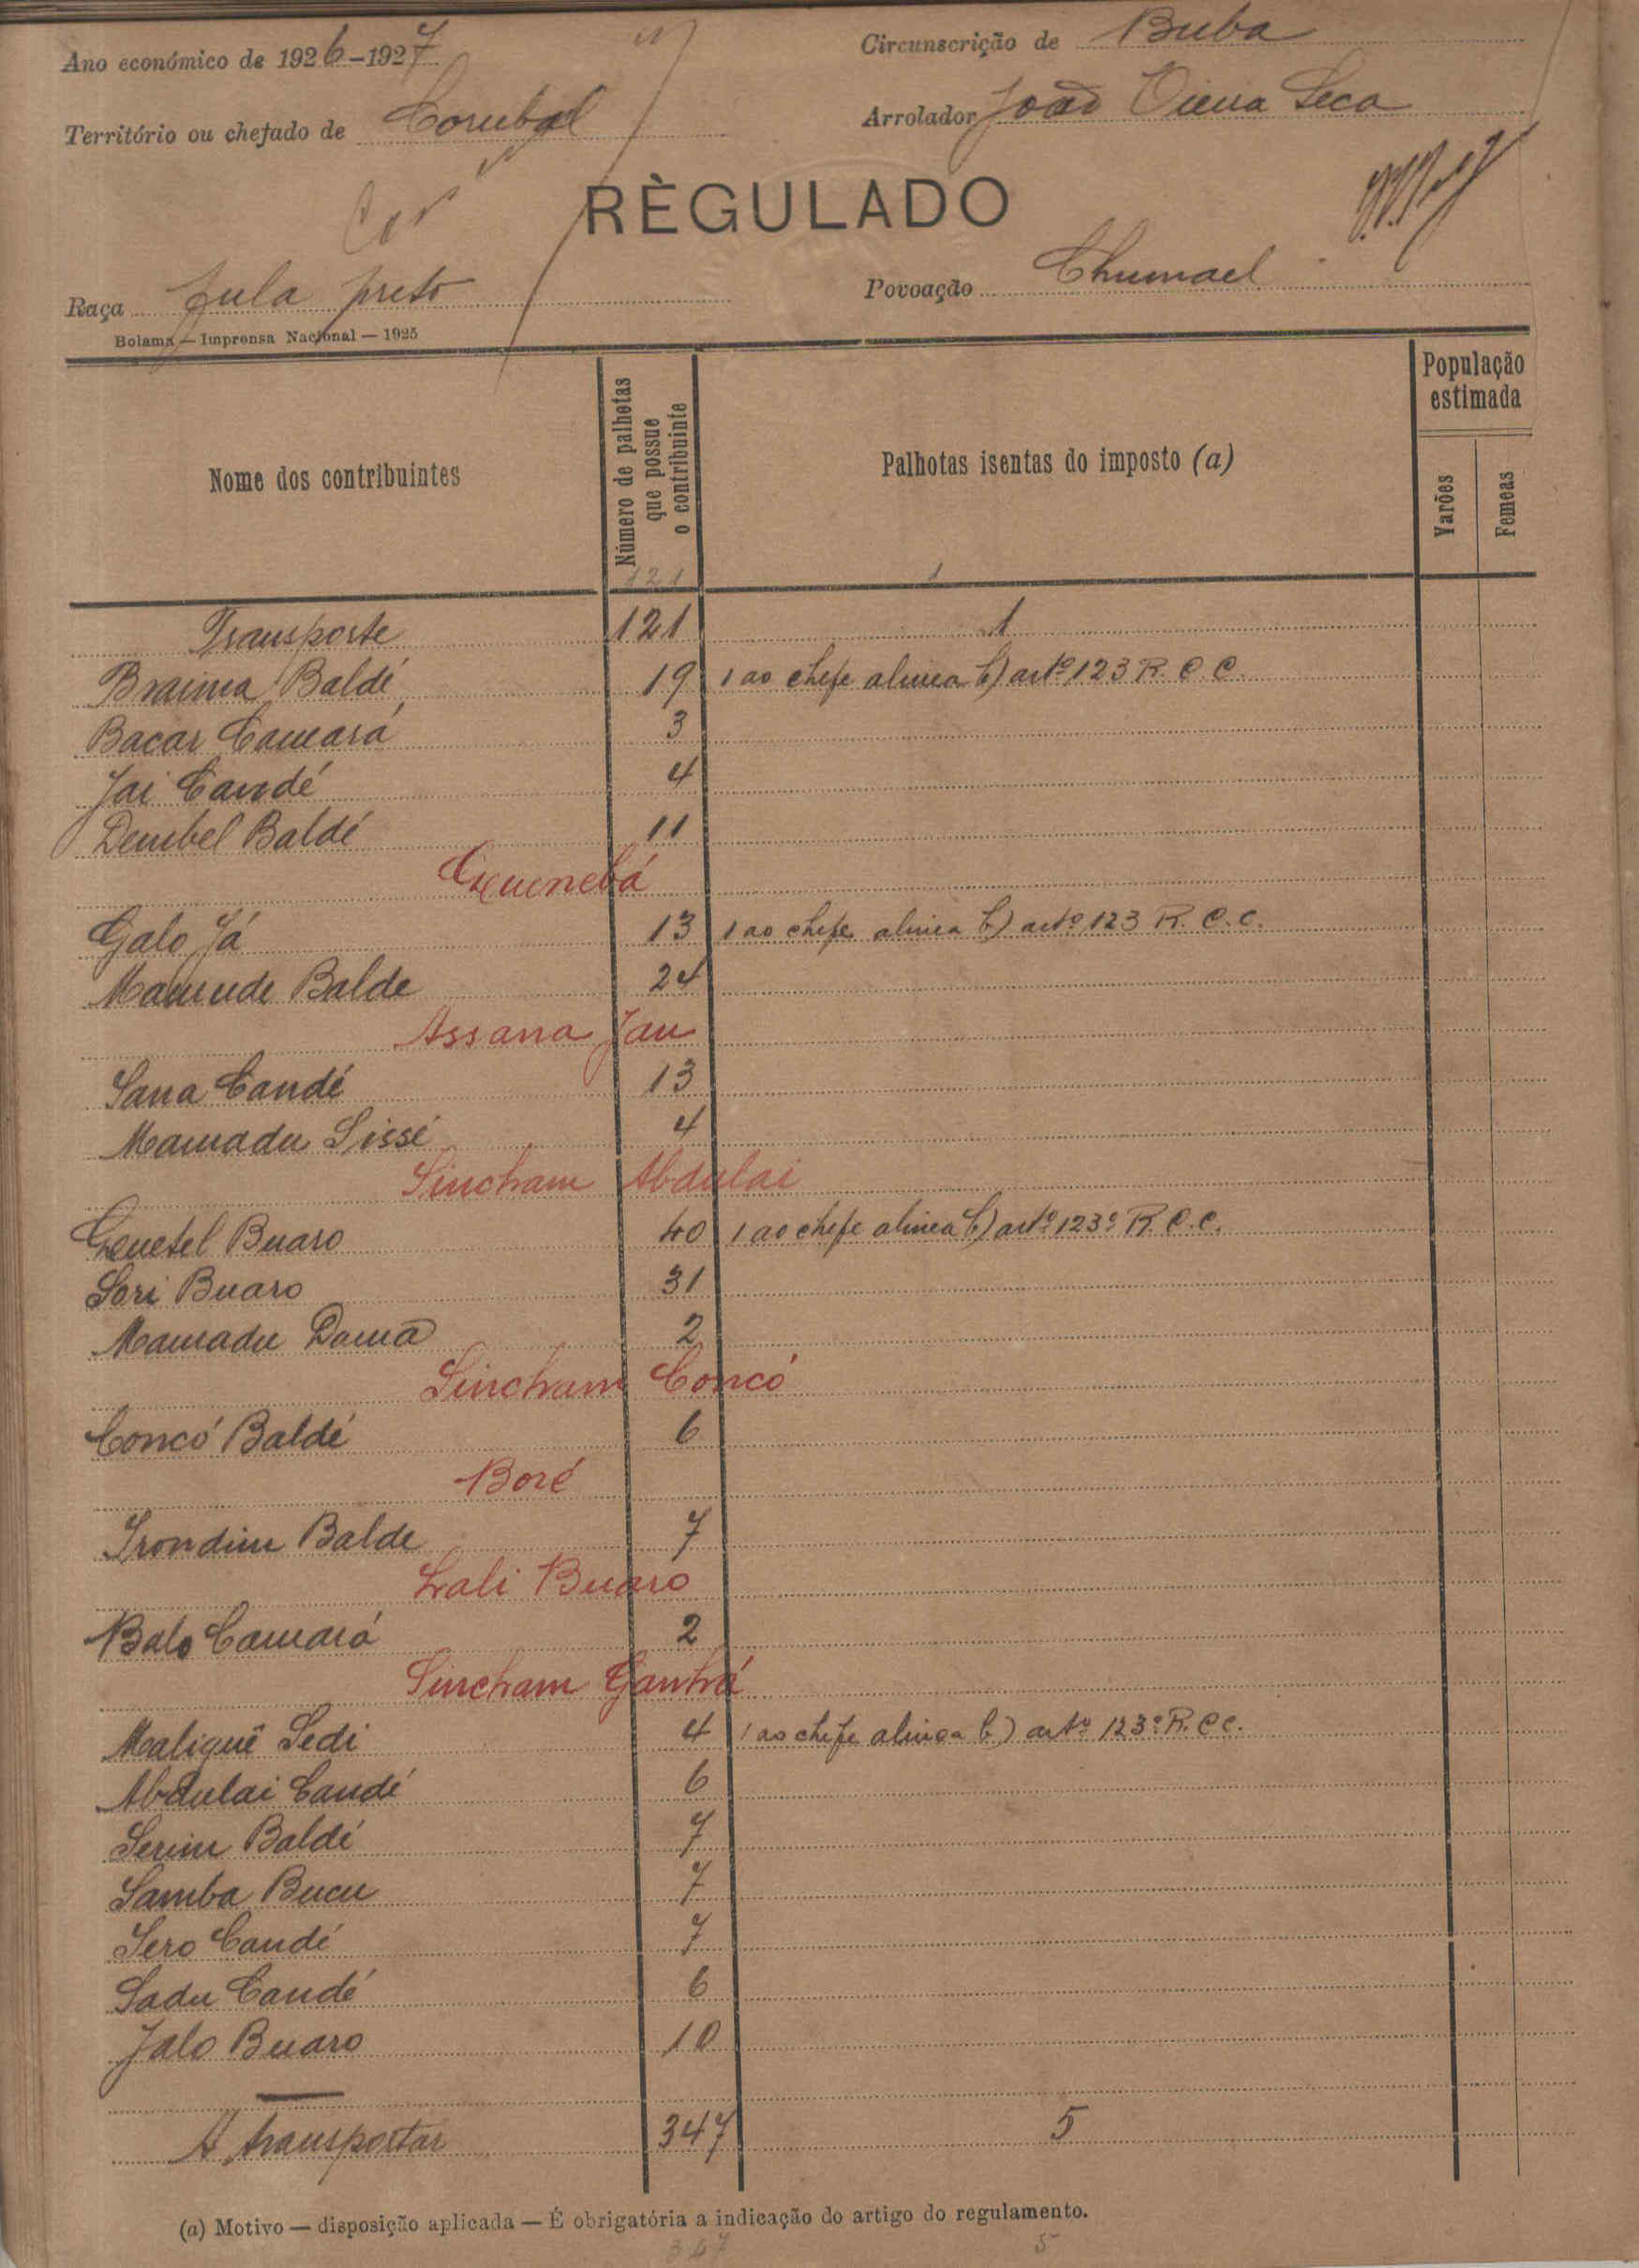 Ano económico de 1926-1927
Circunscrição de Buba
Território ou chefado de Corubal
Arrolador João Vieira Seca
RÈGULADO
Raça fula preto
Povoação Chumael
Bolama — Imprensa Nacional — 1925
Nome dos contribuintes
Número de palhotas que possue o contribuinte
Palhotas isentas do imposto (a)
População estimada
Varões
Femeas
121 1
Transporte 121 1
Braima Baldé 19 1 ao chefe alinea b) artº 123 R. C. C.
Bacar Camará 3
Jai Candé 4
Dembel Baldé 11
Galo Já 13 1 ao chefe alinea b) artº 123 R. C. C.
Mamude Balde 24
Assana Jau
Sana Candé 13
Mamadu Sissé 4
Sincham Abdulai
Buaro 40 1 ao chefe alinea b) artº 123º R. C. C.
Sori Buaro 31
Mamadu Dama 2
Sincham Concó
Concó Baldé 6
Boré
Balde 7
Lali Buaro
Balo Camará 2
Sincham
Maliquê Sedi 4 1 ao chefe alinea b) artº 123º R. C. C.
Abdulai Candé 6
Serim Baldé 7
Samba Bucu 7
Sero Candé 7
Sadu Candé 6
Jalo Buaro 10
A transportar 347 5
(a) Motivo — disposição aplicada — É obrigatória a indicação do artigo do regulamento.
347 5